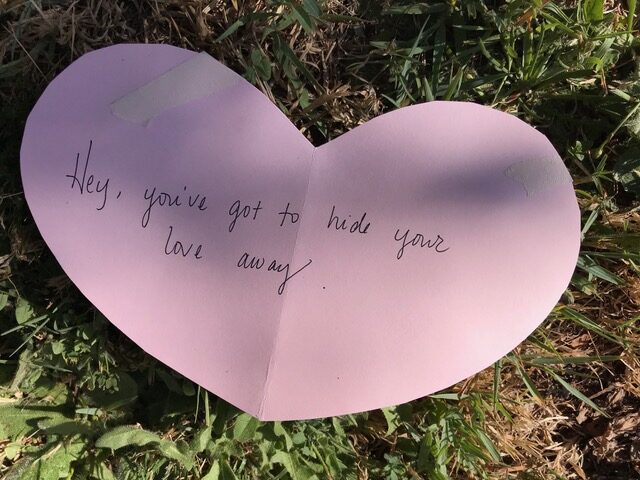 Hey, you've got to hide your
love away.